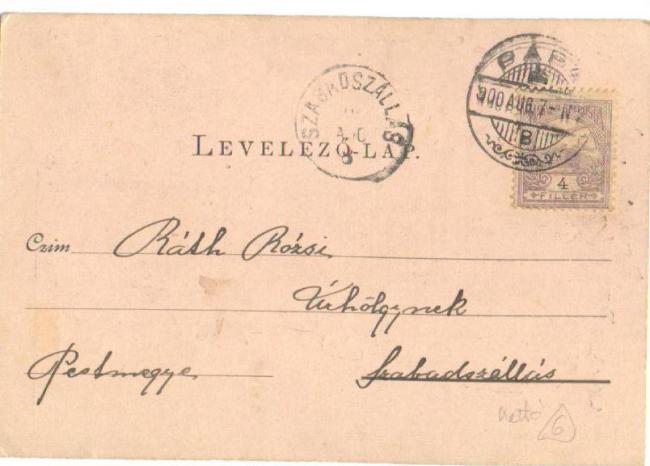 PÁPA
900 AUG. 7
B
4
FILLÉR
AUG
8
LEVELEZŐ-LAP.
Czim Ráth Rózsi
Úrhölgynek
Pestmegye Szabadszállás
6